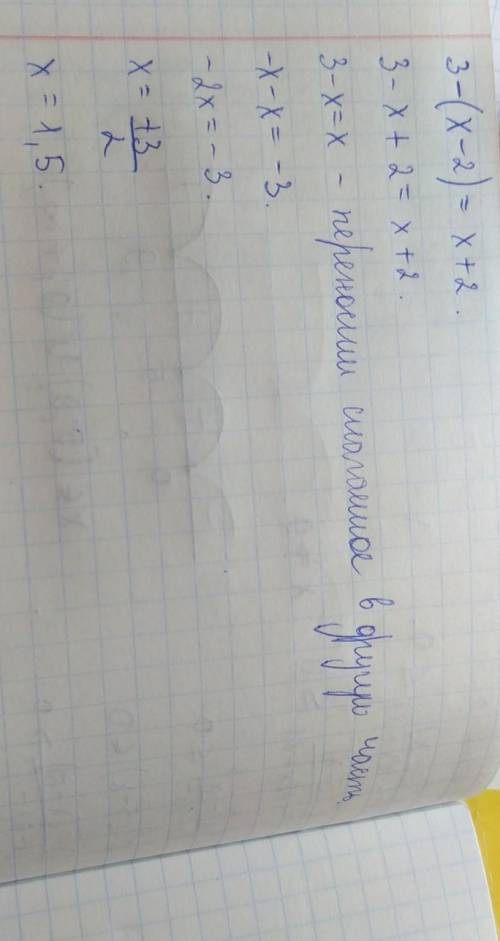 3-(x-2) = x+2.
3-x+2 = x+2.
3-x=x - переносим слагаемое в другую часть.
-x-x = -3.
-2x = -3.
x = +3/2
x = 1,5.